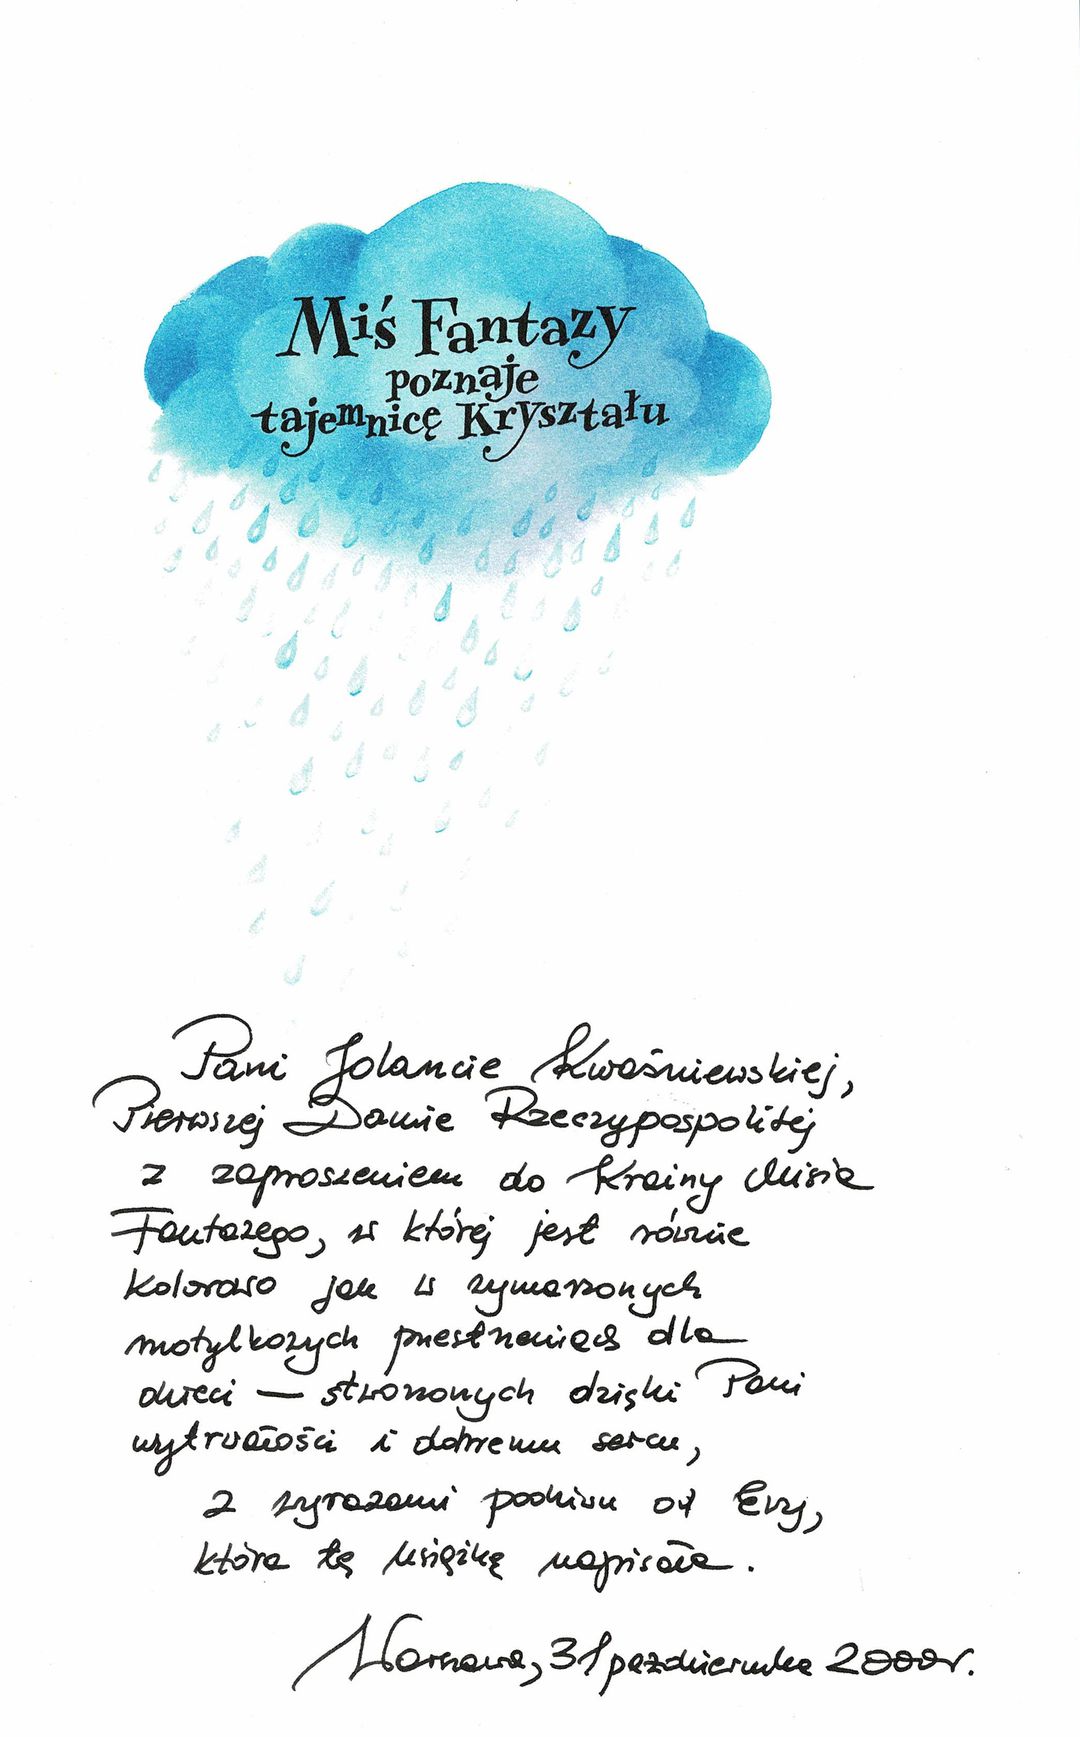 Miś Fantazy
poznaje
tajemnicę Kryształu
Pani Jolancie Kwaśniewskiej,
Pierwszej Damie Rzeczypospolitej
z zaproszeniem do Krainy Misia
Fantazego, w której jest równie
kolorowo jak w wymarzonych
motylkowych przestrzeniach dla
dzieci — stworzonych dzięki Pani
wytrwałości i dobremu sercu,
z wyrazami podziwu od Ewy,
która tę książkę napisała.
Warszawa, 31 października 2000r.